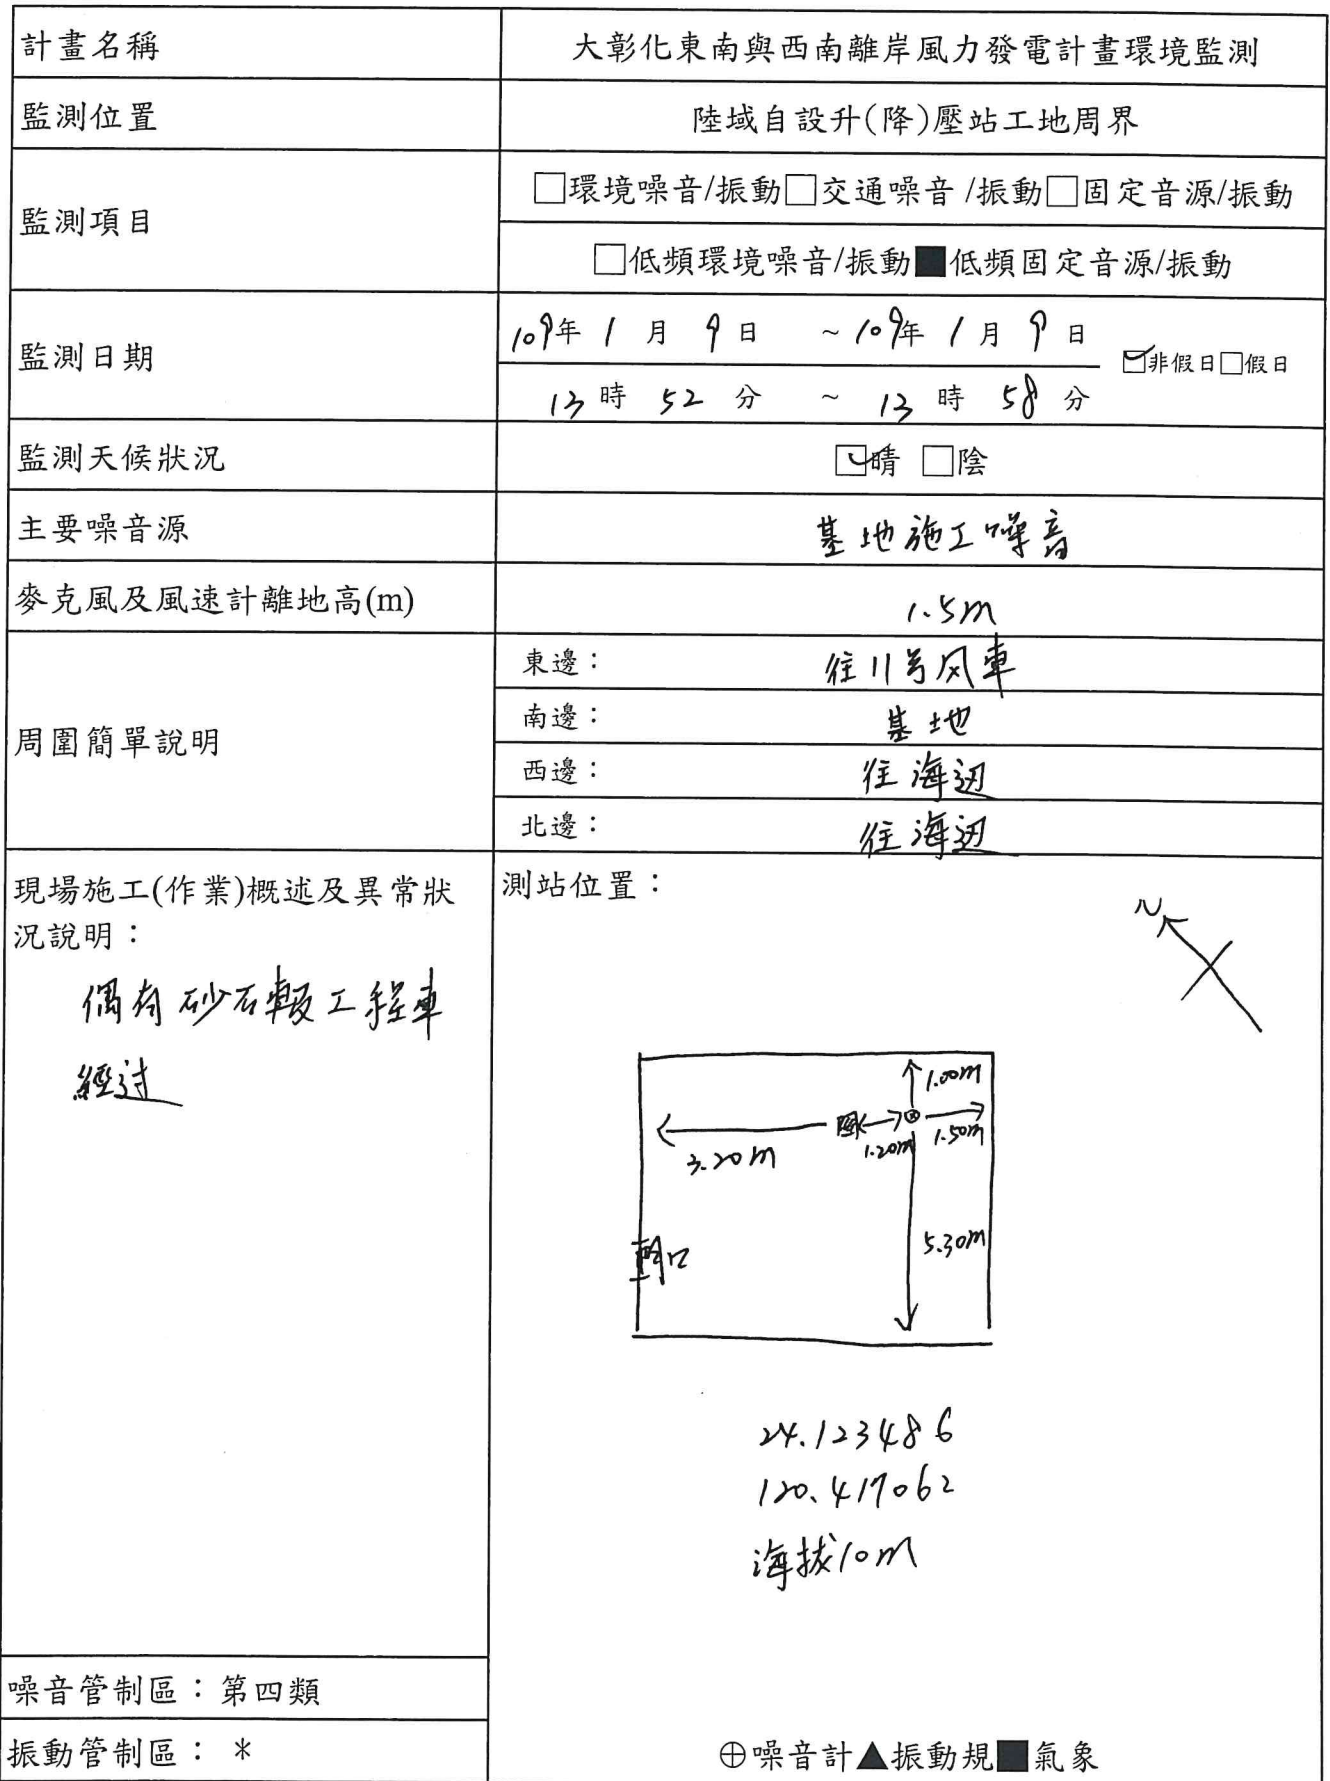 計畫名稱 大彰化東南與西南離岸風力發電計畫環境監測
監測位置 陸域自設升(降)壓站工地周界
監測項目 □環境噪音/振動□交通噪音 /振動□固定音源/振動
□低頻環境噪音/振動■低頻固定音源/振動
監測日期 109年 1 月 9 日 ~ 109年 1 月 9 日 ☑非假日□假日
13 時 52 分 ~ 13 時 58 分
監測天候狀況 ☑晴 □陰
主要噪音源 基地施工噪音
麥克風及風速計離地高(m) 1.5m
周圍簡單說明
東邊： 往11号风車
南邊： 基地
西邊： 往海边
北邊： 往海边
現場施工(作業)概述及異常狀
況說明：
偶有砂石車及工程車
經过
測站位置：
N
1.00m
3.20m
1.20m
1.50m
5.30m
24.123486
120.417062
海拔10m
噪音管制區：第四類
振動管制區： *
⊕噪音計▲振動規■氣象